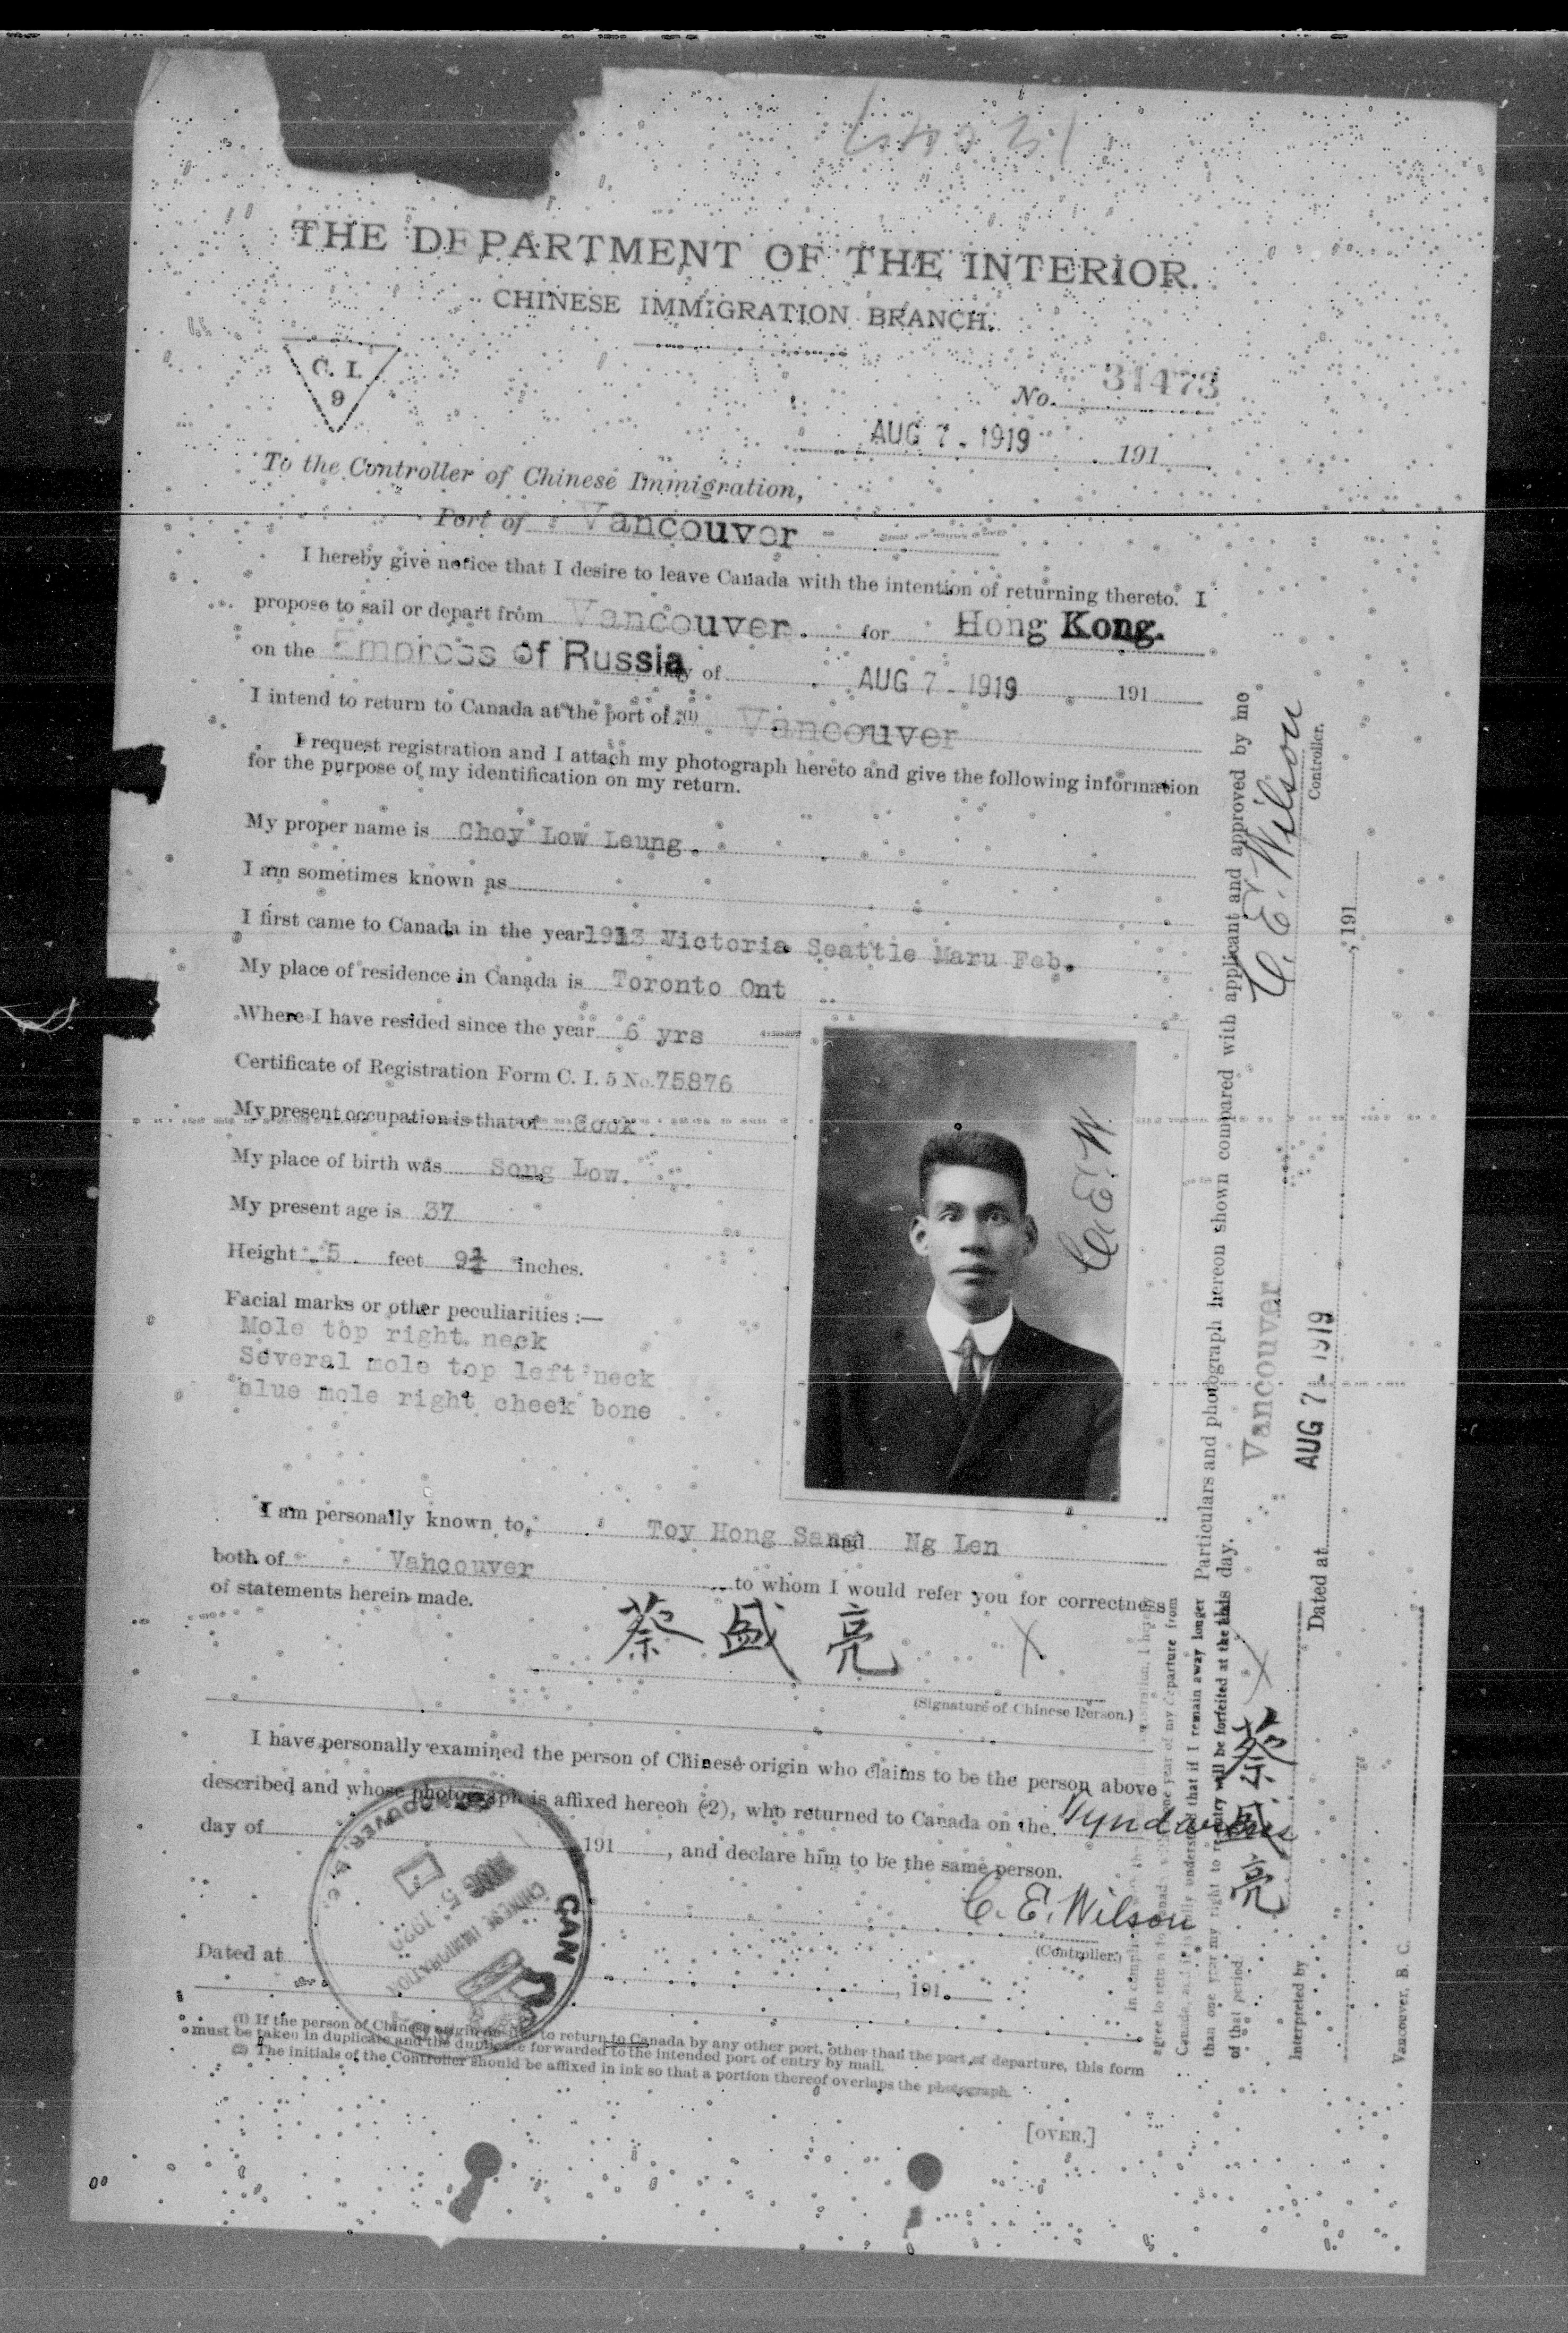 THE DEPARTMENT OF THE INTERIOR.
CHINESE IMMIGRATION BRANCH.
C. I.
9
No. 31473
AUG 7 - 1919 191
To the Controller of Chinese Immigration,
Port of Vancouver
I hereby give notice that I desire to leave Canada with the intention of returning thereto. I
propose to sail or depart from Vancouver. for Hong Kong.
on the Empress of Russia day of AUG 7 - 1919 191
I intend to return to Canada at the port of (1) Vancouver
I request registration and I attach my photograph hereto and give the following information
for the purpose of my identification on my return.
My proper name is Choy Low Leung.
I am sometimes known as
I first came to Canada in the year 1913 Victoria Seattle Maru Feb.
My place of residence in Canada is Toronto Ont
Where I have resided since the year 6 yrs
Certificate of Registration Form C. I. 5 No. 75876
My present occupation is that of Cook
My place of birth was Song Low.
My present age is 37
Height 5 feet 9¾ inches.
Facial marks or other peculiarities :—
Mole top right neck
Several mole top left neck
blue mole right cheek bone
C. E. W
I am personally known to, Toy Hong Sang and Ng Len
both of Vancouver to whom I would refer you for correctness
of statements herein made.
蔡盛亮 X
(Signature of Chinese Person.)
I have personally examined the person of Chinese origin who claims to be the person above
described and whose photograph is affixed hereon (2), who returned to Canada on the Tyndareus
day of 191 , and declare him to be the same person.
C. E. Wilson
(Controller.)
Dated at , 191
VANCOUVER B.C.
CHINESE IMMIGRATION
CAN
(1) If the person of Chinese origin to return to Canada by any other port, other than the port of departure, this form
must be taken in duplicate and the duplicate forwarded to the intended port of entry by mail.
(2) The initials of the Controller should be affixed in ink so that a portion thereof overlaps the photograph.
[OVER.]
Particulars and photograph hereon shown compared with applicant and approved by me
this day.
C. E. Wilson
Controller.
Vancouver
AUG 7 - 1919
Dated at , 191
agree to return to Canada one year of my departure from
Canada, and understand that if I remain away longer
than one year my right to re-entry will be forfeited at the
of that period.
X 蔡盛亮
Interpreted by
Vancouver, B. C.